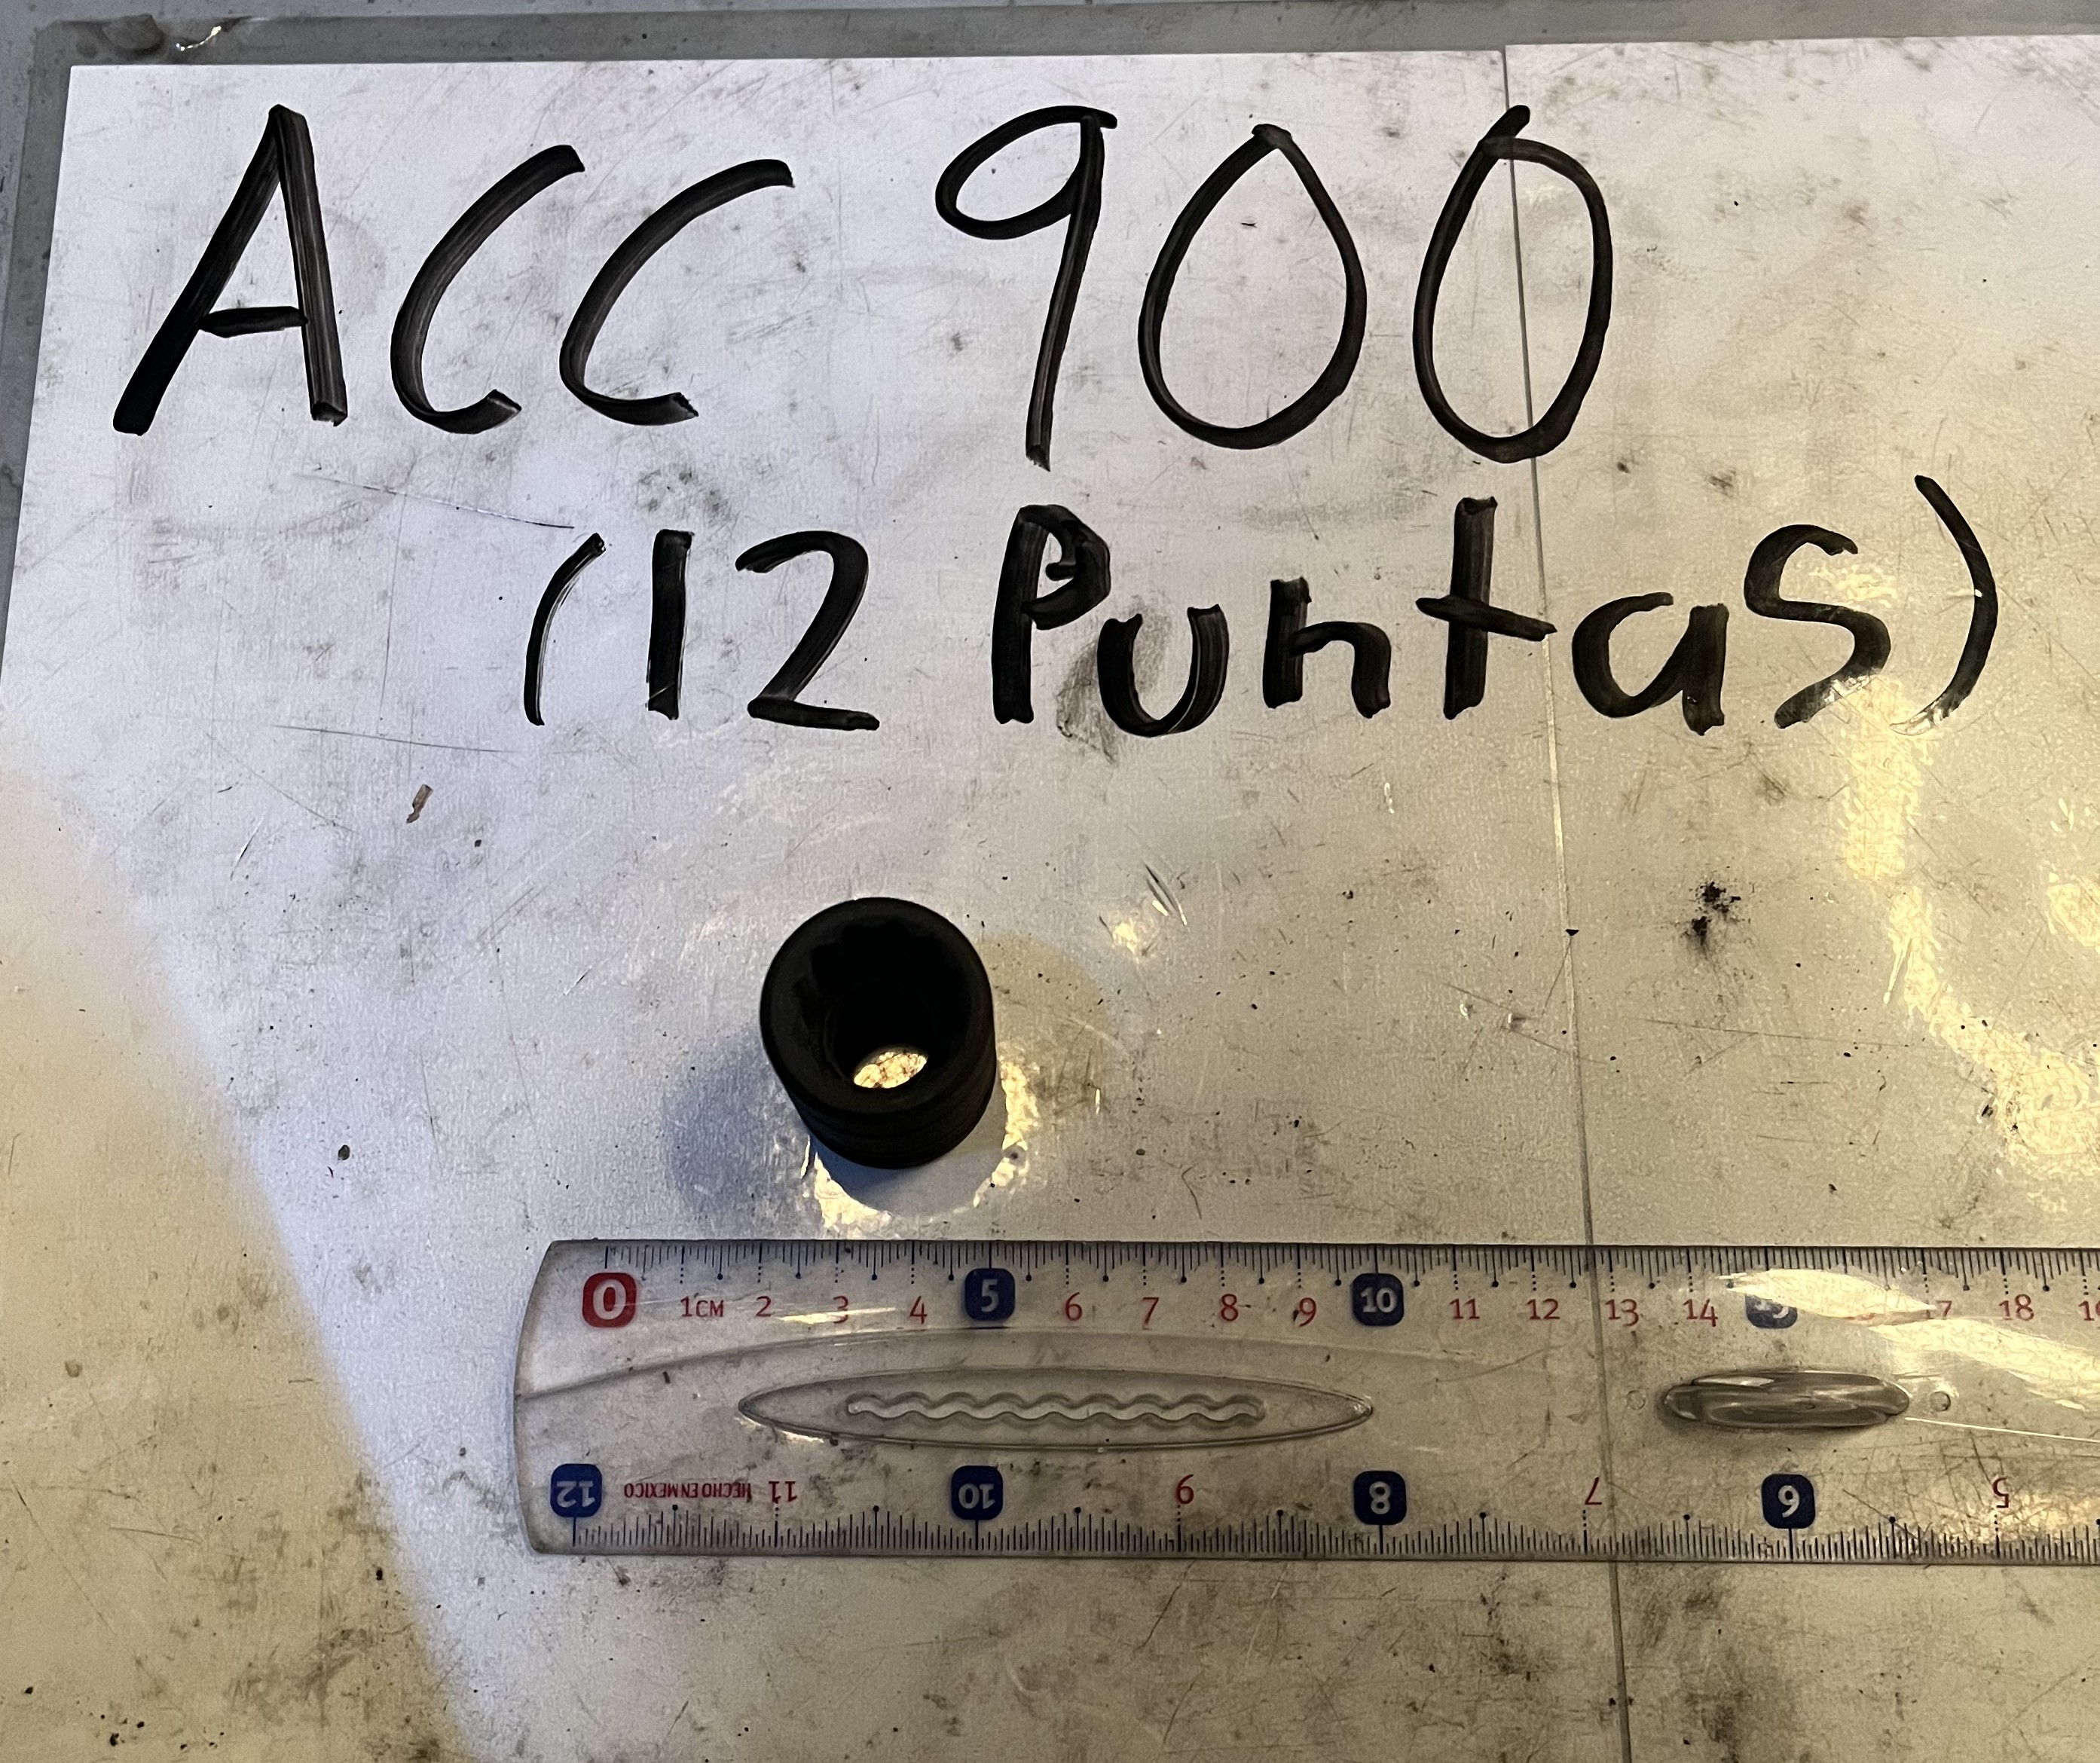 ACC 900
(12 Puntas)
0 1CM 2 3 4 5 6 7 8 9 10 11 12 13 14 15 17 18
12 HECHO EN MEXICO 11 10 9 8 7 6 5